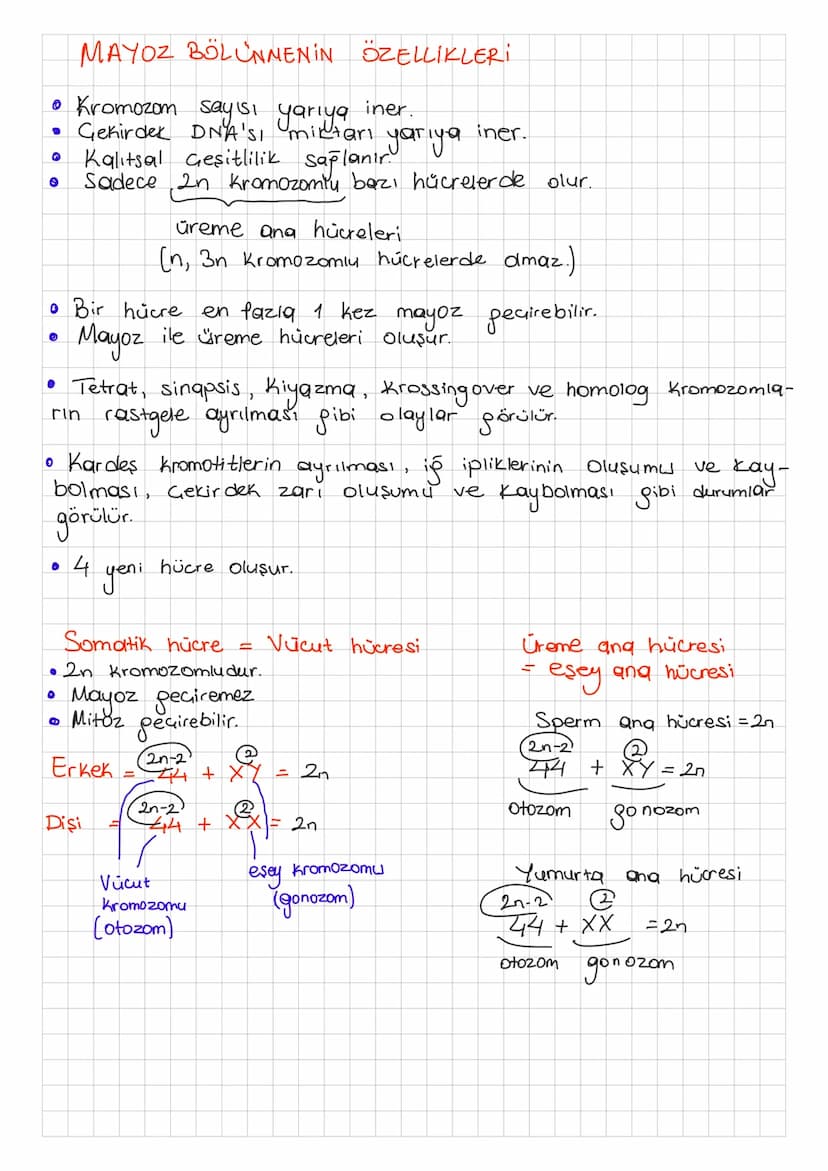 MAYOZ BÖLÜNMENİN ÖZELLİKLERİ
• Kromozom sayısı yarıya iner.
• Çekirdek DNA'sı miktarı yarıya iner.
• Kalıtsal çeşitlilik sağlanır.
• Sadece 2n kromozomlu bazı hücrelerde olur.
üreme ana hücreleri
(n, 3n kromozomlu hücrelerde olmaz.)
• Bir hücre en fazla 1 kez mayoz geçirebilir.
• Mayoz ile üreme hücreleri oluşur.
• Tetrat, sinapsis, kiyazma, krossing over ve homolog kromozomla-
rın rastgele ayrılması gibi olaylar görülür.
• Kardeş kromotitlerin ayrılması, iğ ipliklerinin oluşumu ve kay-
bolması, çekirdek zarı oluşumu ve kaybolması gibi durumlar
görülür.
• 4 yeni hücre oluşur.
Somatik hücre = Vücut hücresi
• 2n kromozomludur.
• Mayoz geçiremez
• Mitoz geçirebilir.
2n-2 2
Erkek = 44 + XY = 2n
2n-2 2
Dişi = 44 + XX = 2n
Vücut kromozomu (otozom)
eşey kromozomu (gonozom)
Üreme ana hücresi
= eşey ana hücresi
Sperm ana hücresi = 2n
2n-2 2
44 + XY = 2n
otozom gonozom
Yumurta ana hücresi
2n-2 2
44 + XX = 2n
otozom gonozom